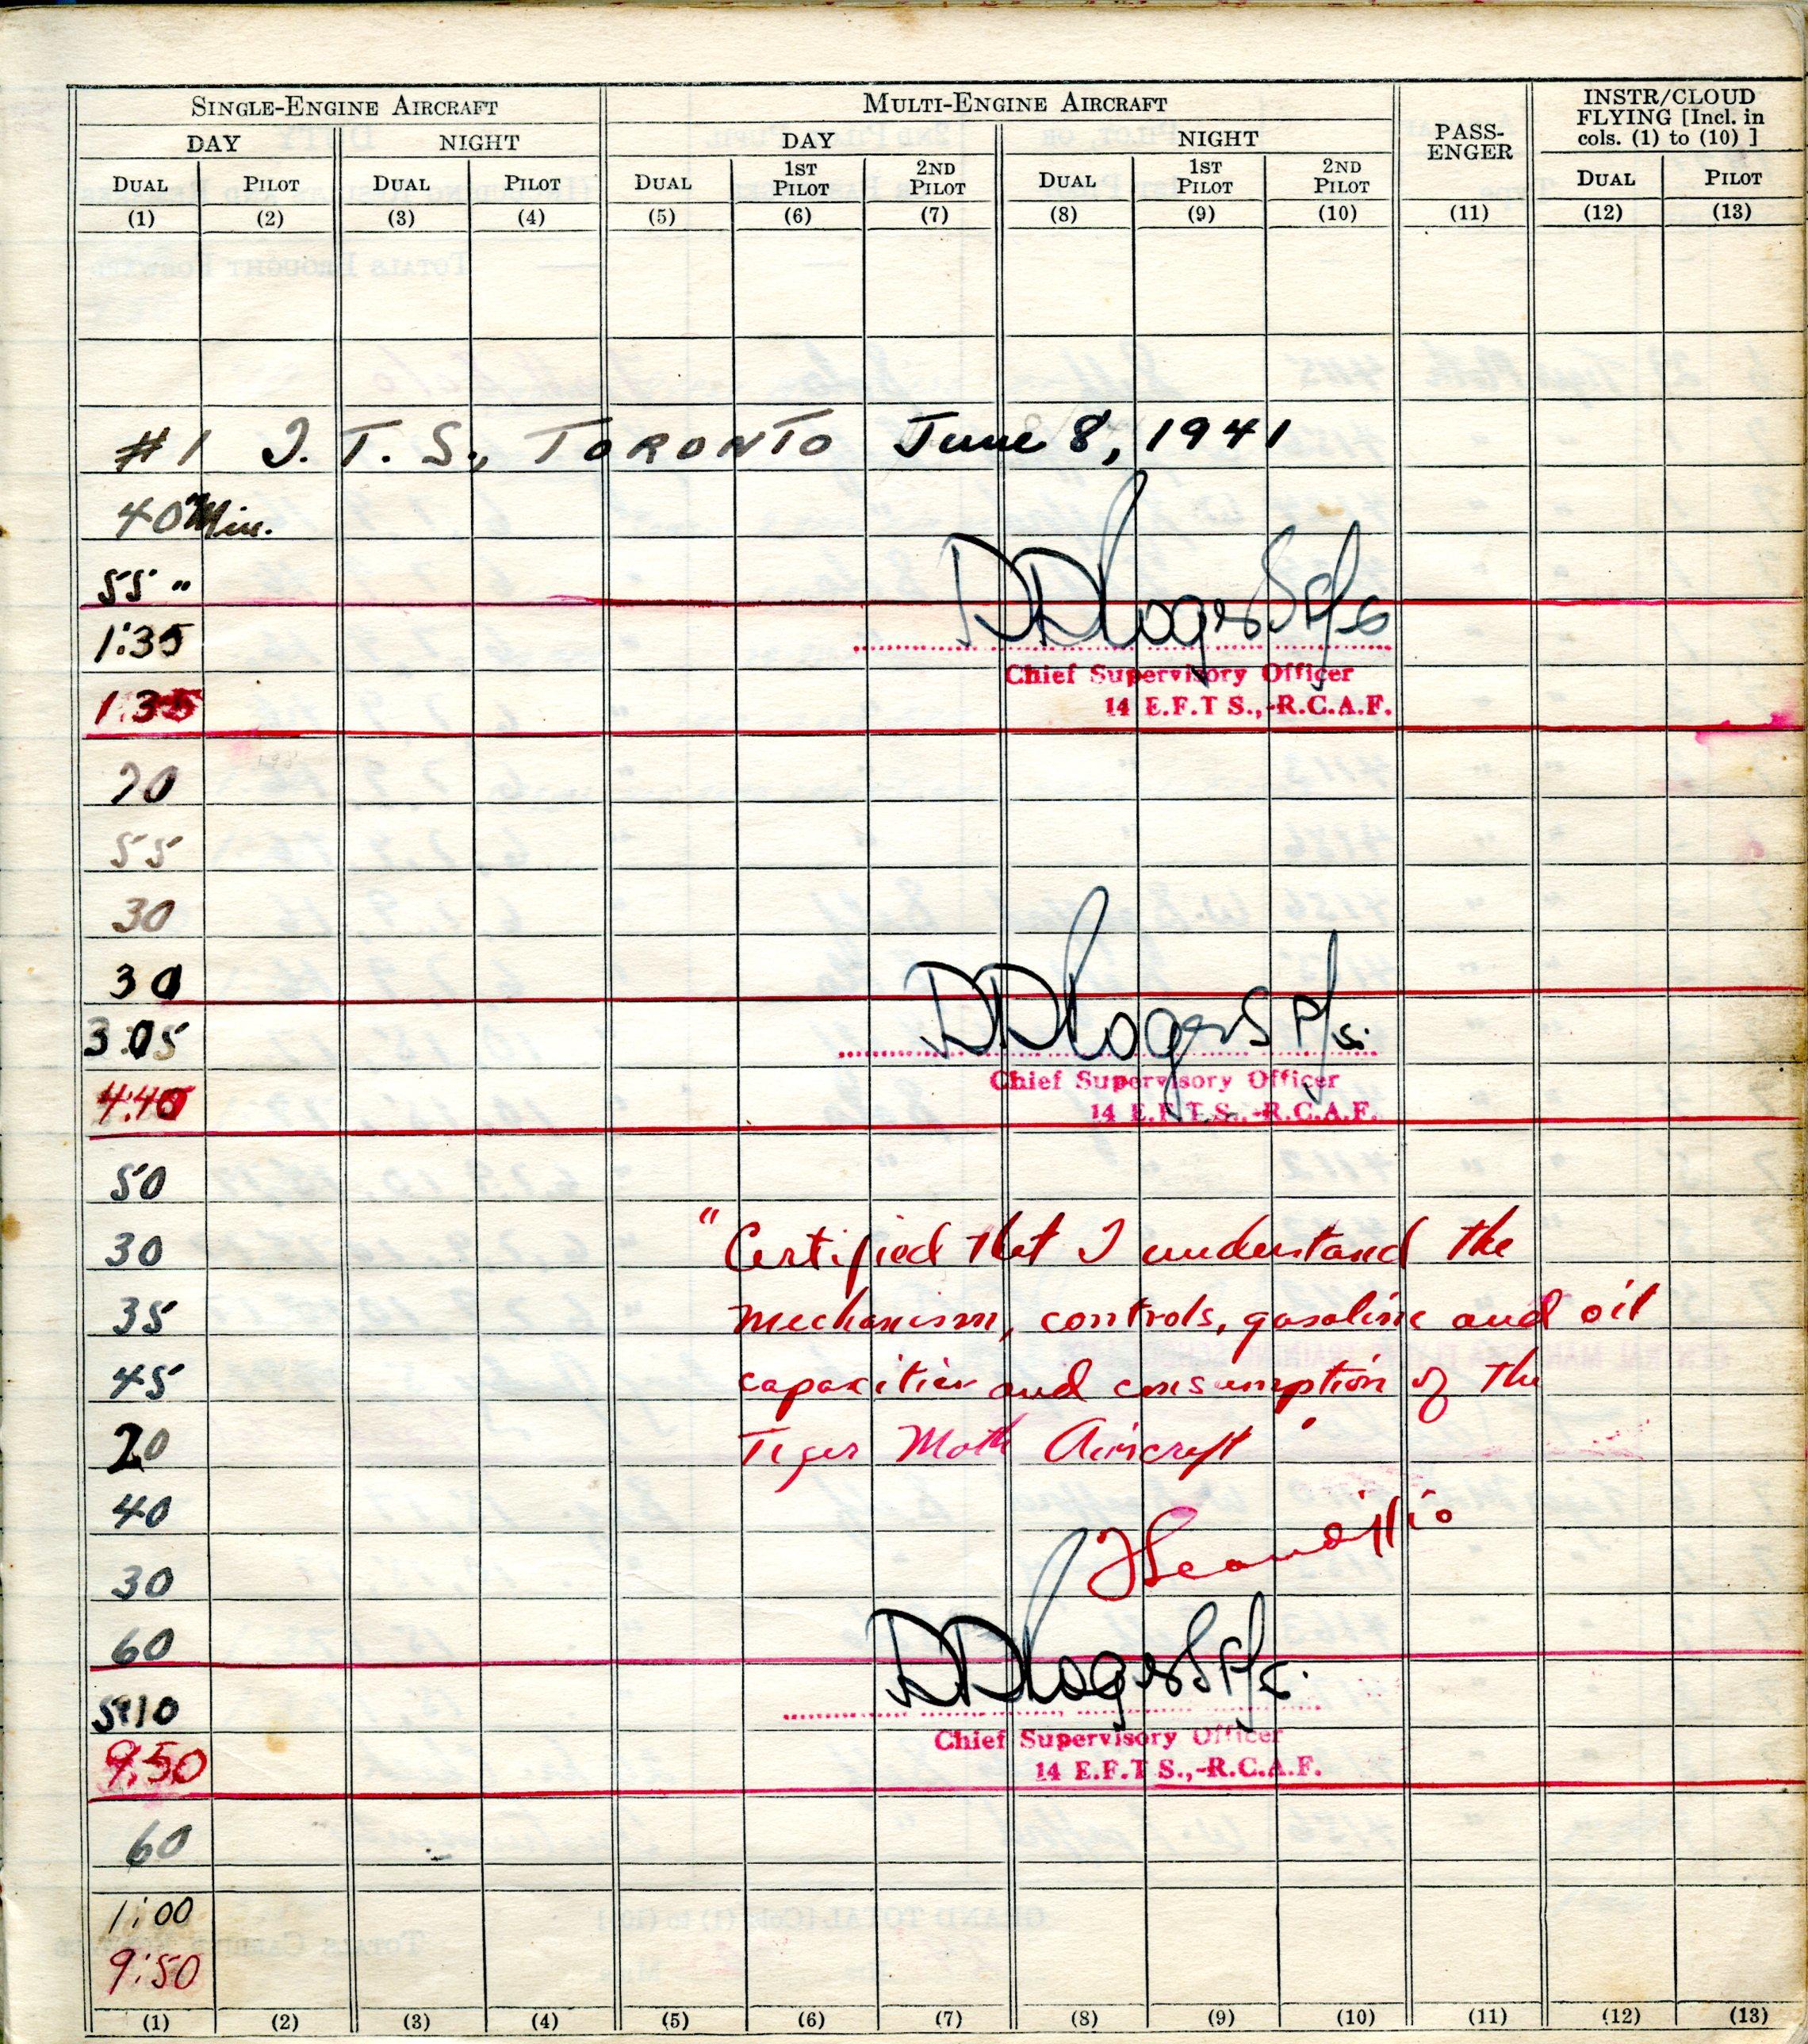 SINGLE-ENGINE AIRCRAFT MULTI-ENGINE AIRCRAFT PASS-ENGER INSTR/CLOUD FLYING [Incl. in cols. (1) to (10) ]
DAY NIGHT DAY NIGHT
DUAL PILOT DUAL PILOT DUAL 1ST PILOT 2ND PILOT DUAL 1ST PILOT 2ND PILOT DUAL PILOT
(1) (2) (3) (4) (5) (6) (7) (8) (9) (10) (11) (12) (13)
#1 I. T. S., TORONTO June 8, 1941
40 Min.
55 "
1:35 DDRogers F/O
Chief Supervisory Officer
1:35 14 E.F.T S.,-R.C.A.F.
70
55
30
30
3:05 DDRogers
Chief Supervisory Officer
4:40 14 E.F.T.S.,-R.C.A.F.
50
30 "Certified that I understand the
35 mechanism, controls, gasoline and oil
45 capacities and consumption of the
20 Tiger Moth Aircraft"
40
30
60
5:10 DDRogers
Chief Supervisory Officer
9:50 14 E.F.T S.,-R.C.A.F.
60
1:00
9:50
(1) (2) (3) (4) (5) (6) (7) (8) (9) (10) (11) (12) (13)